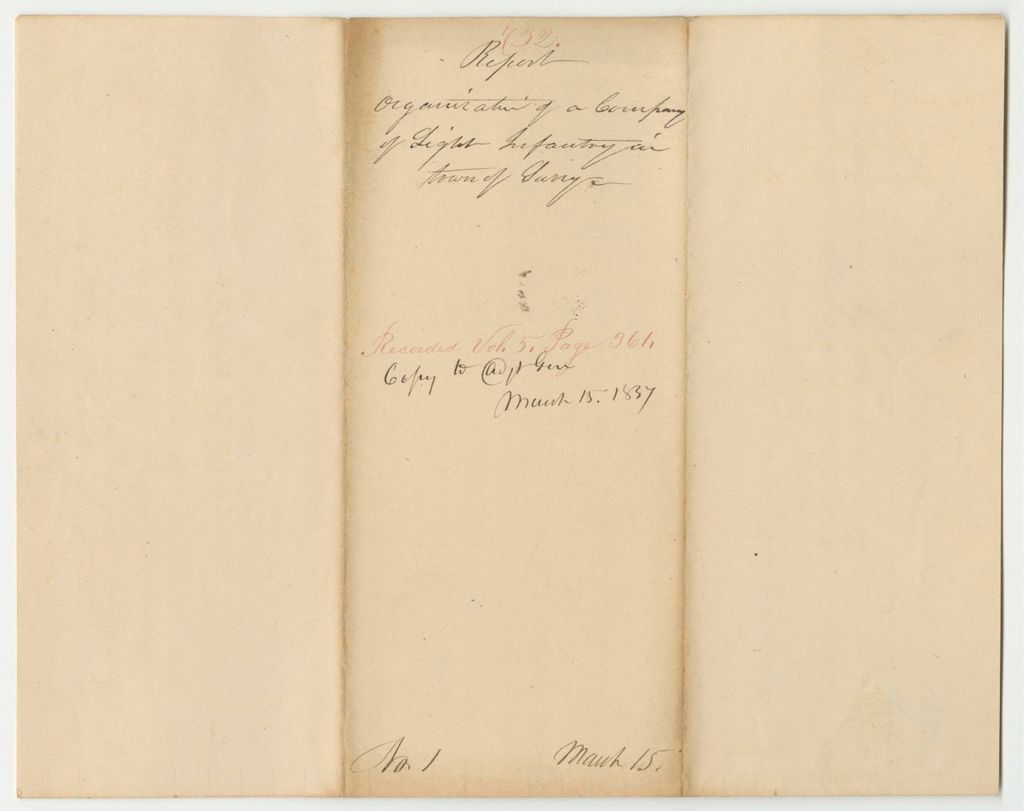 732.
Report
Organizatin of a Company
of Light Infantry in
town of Surry
Recorded Vol. 5. Page 361.
Copy to Adjt Gen
March 15. 1837
No. 1 March 15.